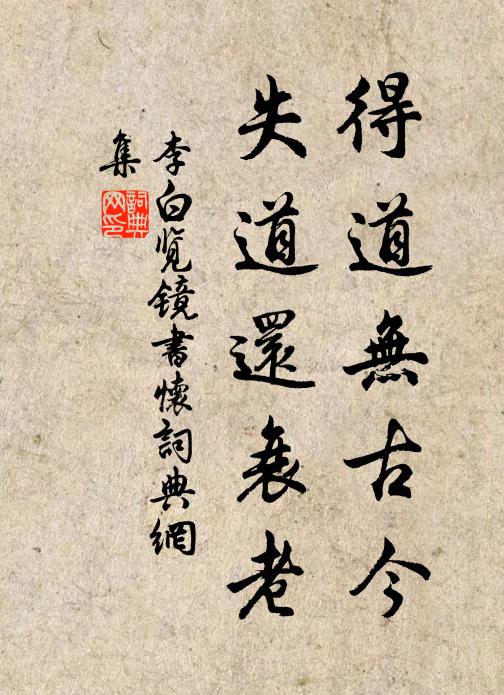 得道無古今
失道還衰老
李白覽镜書懷詞典網
集
詞典
网印